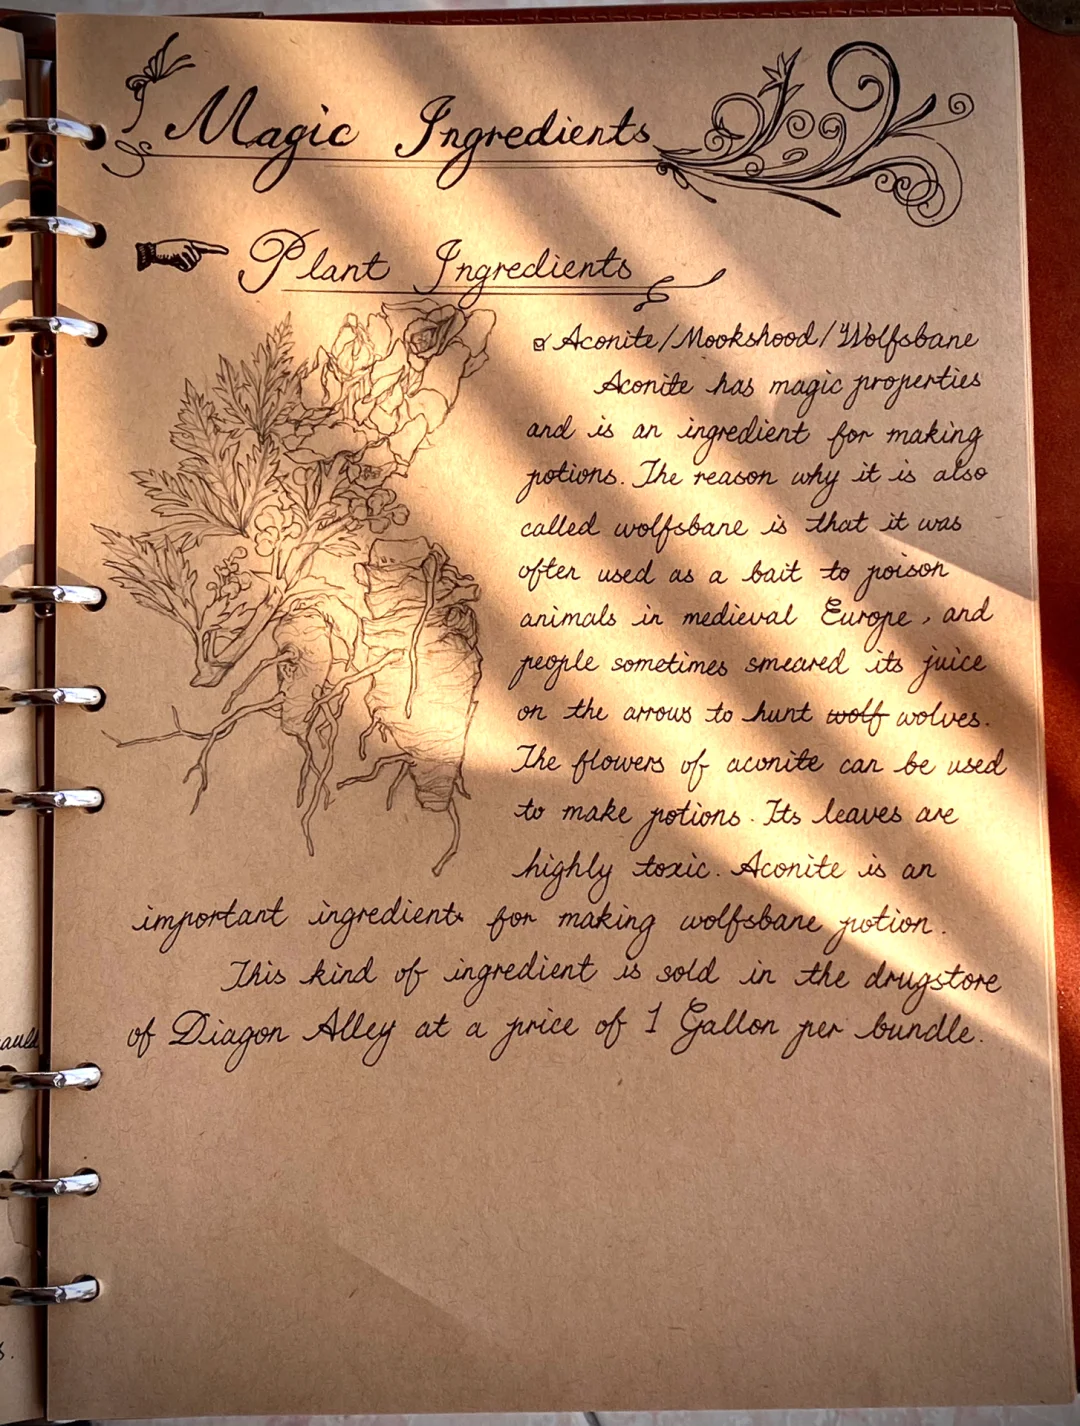 Magic Ingredients
Plant Ingredients
Aconite/Mookshood/Wolfsbane
Aconite has magic properties
and is an ingredient for making
potions. The reason why it is also
called wolfsbane is that it was
often used as a bait to poison
animals in medieval Europe, and
people sometimes smeared its juice
on the arrows to hunt wolf wolves.
The flowers of aconite can be used
to make potions. Its leaves are
highly toxic. Aconite is an
important ingredient for making wolfsbane potion.
This kind of ingredient is sold in the drugstore
of Diagon Alley at a price of 1 Gallon per bundle.